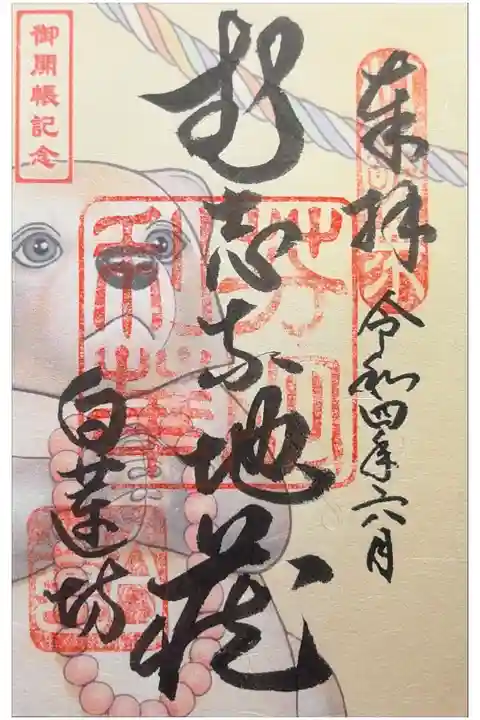 奉拝
令和四年六月
志な地蔵
白蓮坊
御開帳記念